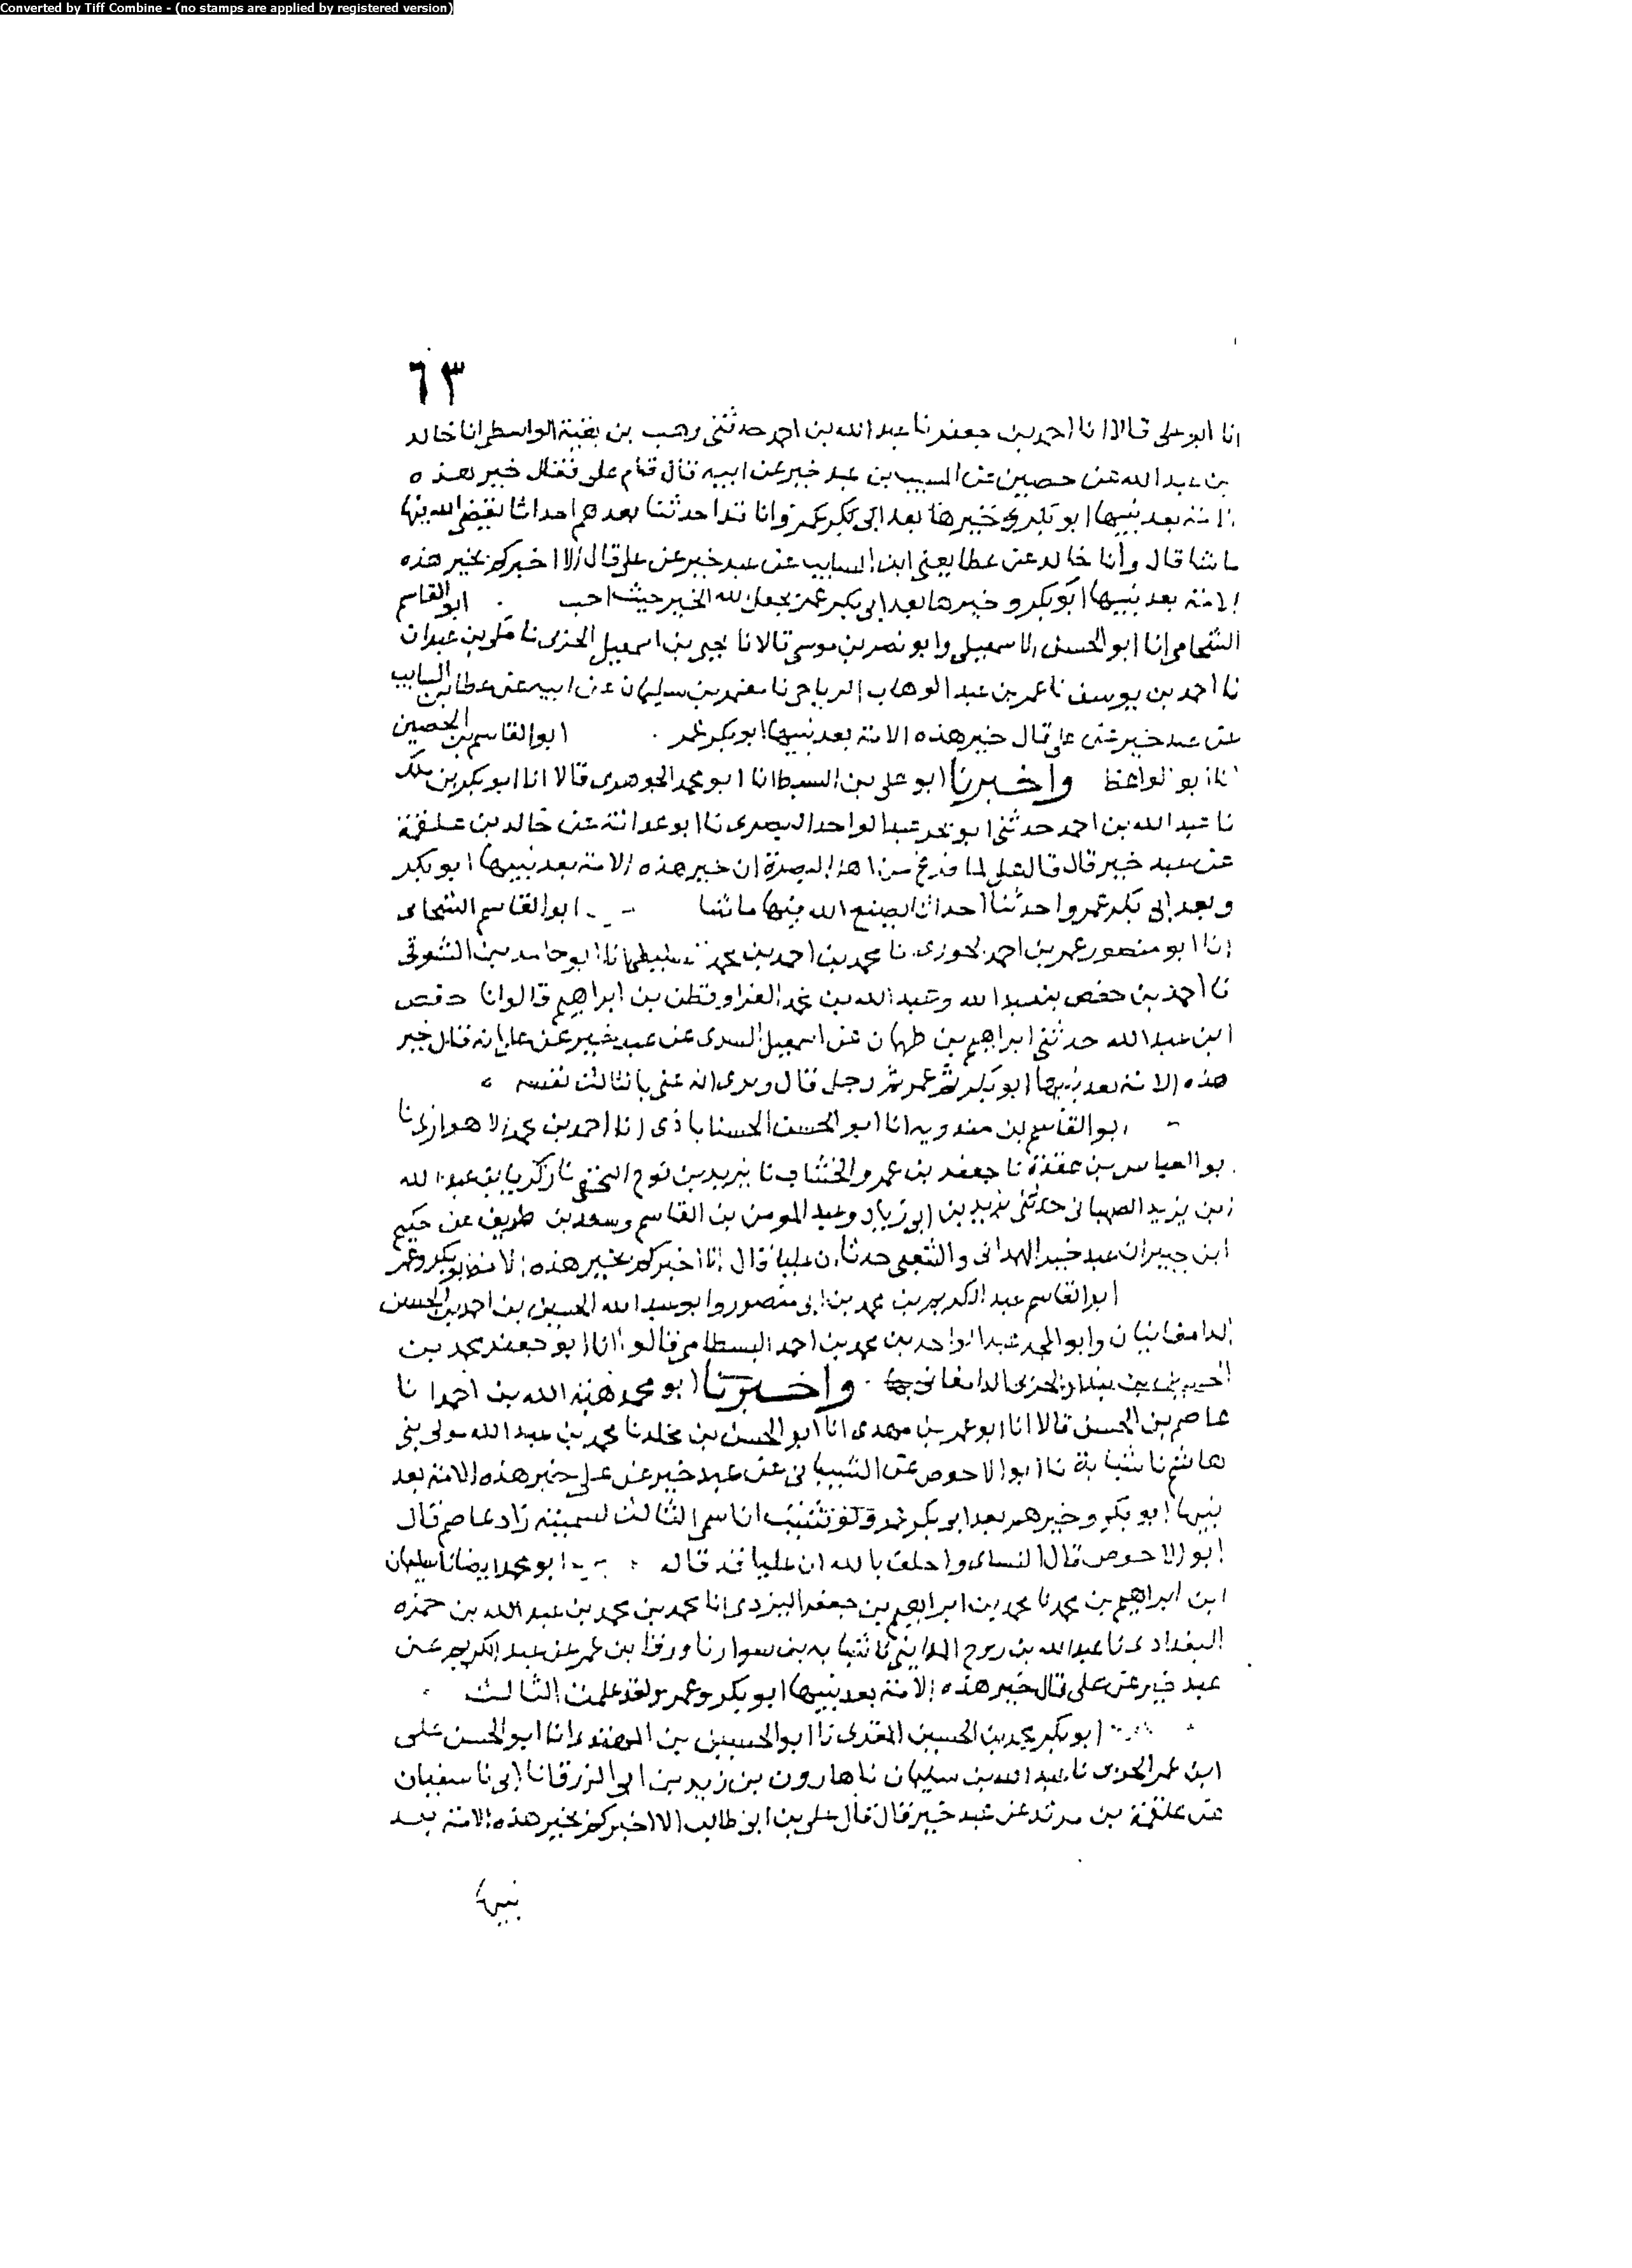 Converted by Tiff Combine - (no stamps are applied by registered version)
٦٣
انا ابو على قالا انا احمد بن جعفر نا عبد الله بن احمد حدثنى وهب بن بقية الواسطى انا خالد
بن عبد الله عن حصين عن المسيب بن عبد خير عن ابيه قال قام على فقال خير هذه
الامة بعد نبيها ابو بكر وخيرها بعد ابى بكر عمر وانا قد احدثنا بعدهم احداثا يقضى الله فيها
ما شا قال وانا خالد عن عطا يعنى ابن السايب عن عبد خير عن على قال الا اخبركم بخير هذه
الامة بعد نبيها ابو بكر وخيرها بعد ابى بكر عمر يجعل الله الخير حيث احب ابو القاسم
الشحامى انا ابو الحسن الاسمعيلى وابو نصر بن موسى قالا انا يحيى بن اسمعيل الحربى نا مكى بن عبدان
نا احمد بن يوسف نا عمر بن عبد الوهاب الرياحى نا معتمر بن سليمان عن ابيه عن عطا بن السايب
عن عبد خير عن على قال خير هذه الامة بعد نبيها ابو بكر وعمر ابو القاسم بن الحصين
انا ابو الواعظ واخبرنا ابو على بن السبط انا ابو محمد الجوهرى قالا انا ابو بكر بن ملك
نا عبد الله بن احمد حدثنى ابو بحر عبد الواحد البصرى نا ابو عوانة عن خالد بن علقمة
عن عبد خير قال قال على لما فرغ من اهل البصرة ان خير هذه الامة بعد نبيها ابو بكر
وبعد ابى بكر عمر واحدثنا احداثا يصنع الله فيها ما شا ابو القاسم الشحامى
انا ابو منصور عمر بن احمد الجوزى نا محمد بن احمد بن محمد انا ابو حامد بن الشرقى
نا احمد بن حفص بن عبد الله وعبد الله بن محمد الفرا وقطن بن ابراهيم قالوا نا حفص
ابن عبد الله حدثنى ابراهيم بن طهمان عن اسمعيل السدى عن عبد خير عن على انه قال خير
هذه الامة بعد نبيها ابو بكر ثم عمر ثم رجل قال ويرى انه عنى بالثالث نفسه
ابو القاسم بن مندويه انا ابو الحسن الحسناباذى انا احمد بن محمد الاهوازى نا
ابو العباس بن عقدة نا جعفر بن عمرو الخشاب نا يزيد بن نوح النخعى نا زكريا بن عبد الله
بن يزيد الصهبانى حدثنى يزيد بن ابى زياد وعبد المومن بن القاسم وسعد بن طريف عن حكيم
ابن جبير ان عبد خير الهمدانى والشعبى حدثا ان عليا قال انا اخبركم بخير هذه الامة ابو بكر وعمر
ابو القاسم عبد الكريم بن محمد بن ابى منصور وابو عبد الله الحسين بن احمد بن الحسن
الدامغانيان وابو المجد عبد الواحد بن محمد بن احمد البسطامى قالوا انا ابو جعفر محمد بن
الحسين بن الدامغانى بها واخبرنا ابو محمد هبة الله بن احمد انا
عاصم بن الحسن قالا انا ابو عمر بن مهدى انا ابو الحسن بن مخلد نا محمد بن عبد الله مولى بنى
هاشم نا شبابة نا ابو الاحوص عن الشيبانى عن عبد خير عن على خير هذه الامة بعد
نبيها ابو بكر وخيرهم بعد ابو بكر عمر ولو شئت ان اسمى الثالث لسميته زاد عاصم قال
ابو الاحوص قال واحلف بالله ان عليا قد قاله ابو محمد ايضا نا سليمان
ابن ابراهيم بن محمد نا محمد بن ابراهيم بن جعفر اليزدى انا محمد بن محمد بن عبد الله بن حمزه
البغدادى نا عبد الله بن روح المداينى نا شبابه بن سوار نا ورقا بن عمر عن عبد الكريم عن
عبد خير عن على قال خير هذه الامة بعد نبيها ابو بكر وعمر ولقد علمت الثالث
ابو بكر محمد بن الحسين المقرى نا ابو الحسين بن المهتدى انا ابو الحسن على
ابن عمر الحربى نا عبد الله بن سليمان نا هارون بن زيد بن ابى الزرقا نا ابى نا سفيان
عن علقمة بن مرثد عن عبد خير قال قال على بن ابى طالب الا اخبركم بخير هذه الامة بعد
نبيها